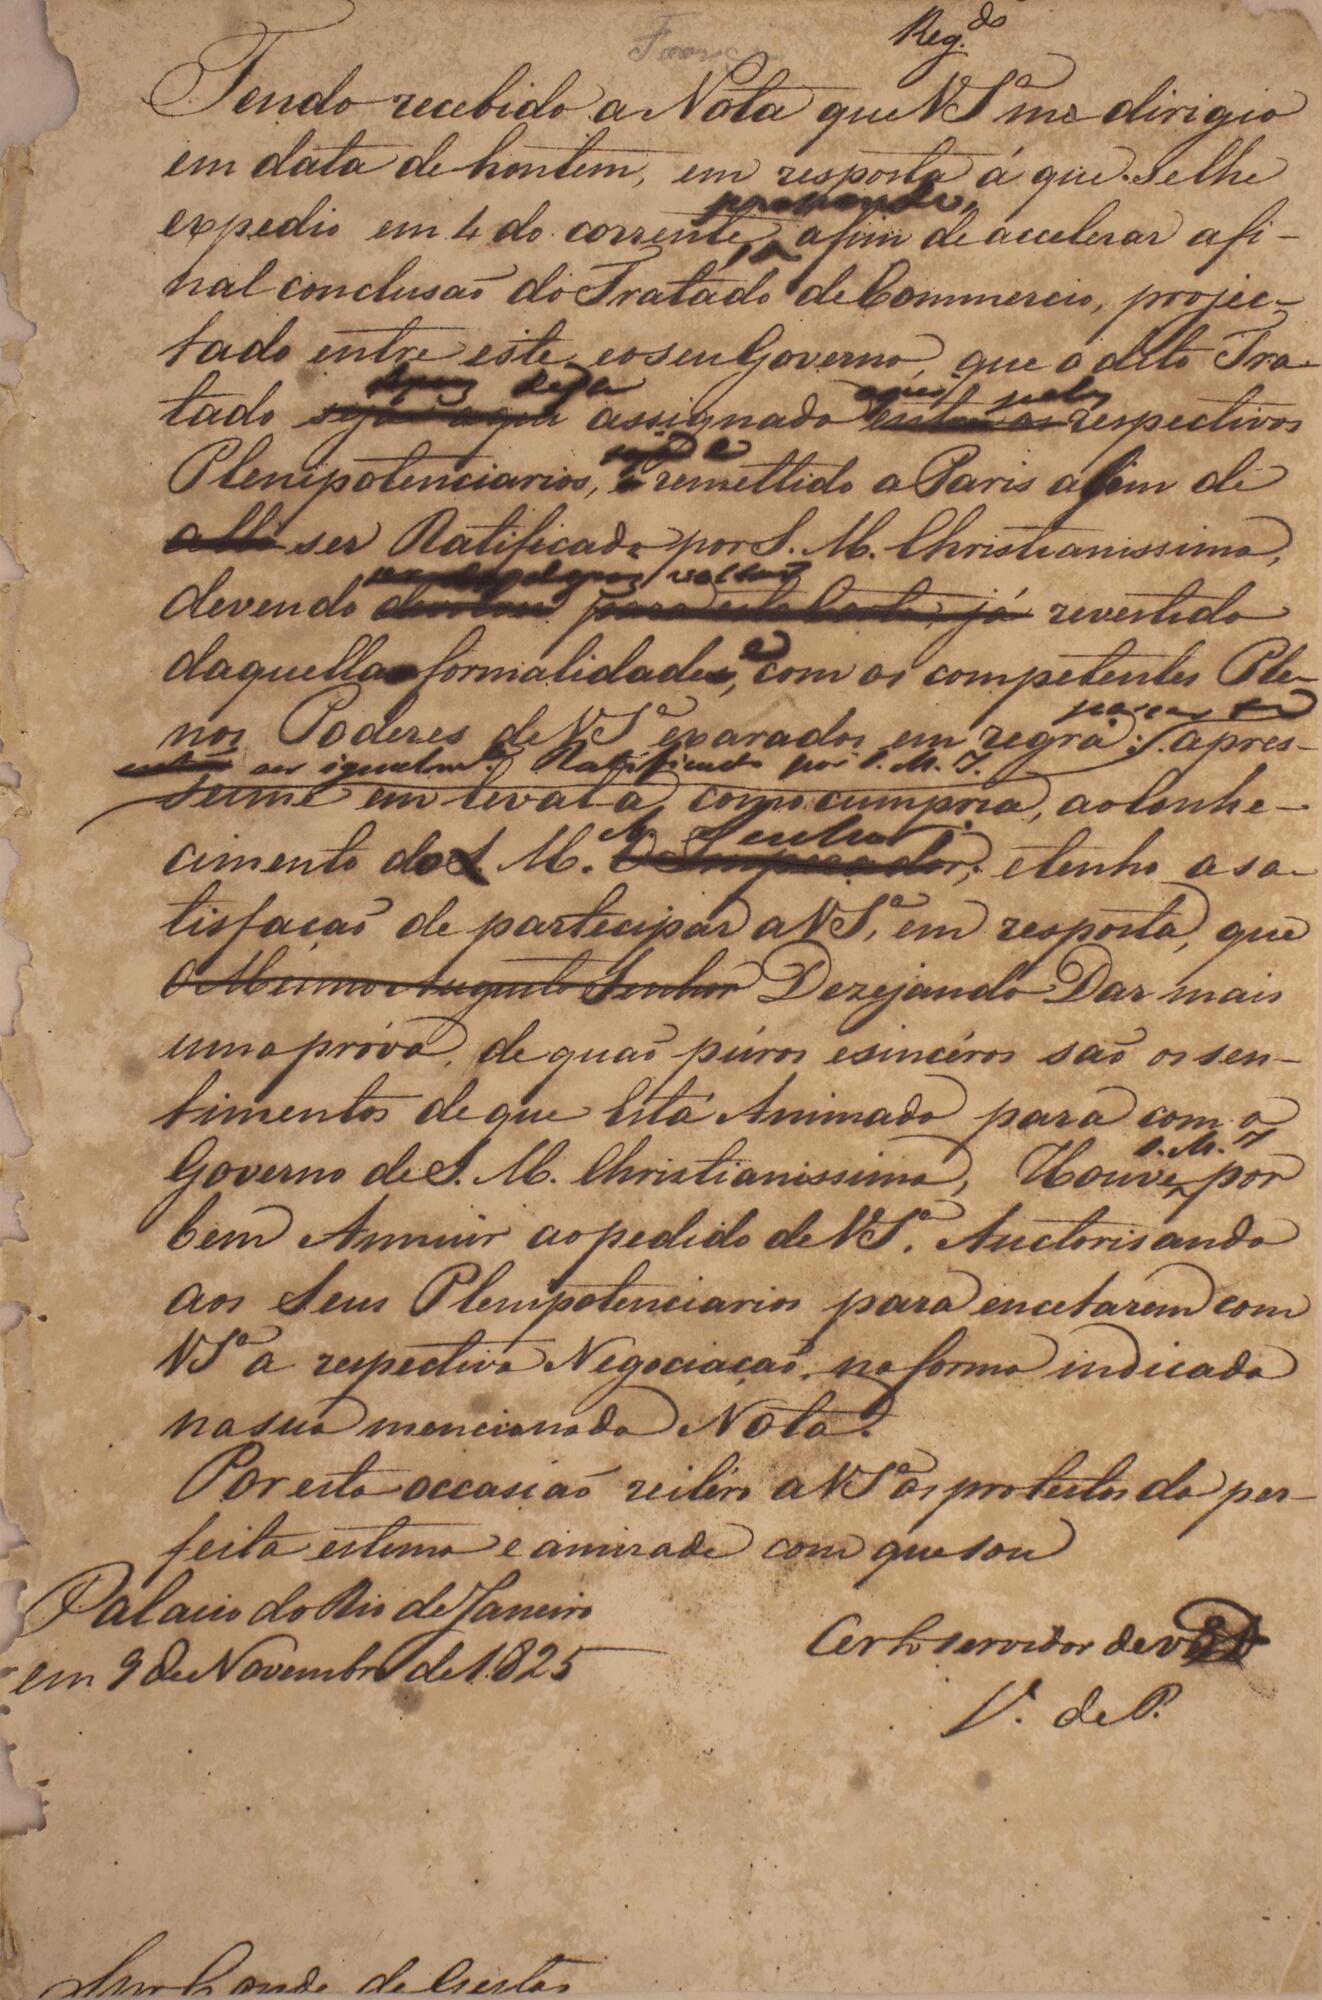 Reg.do
Tendo recebido a Nota que VSa me dirigio
em data de hontem, em resposta á que se lhe
expedio em 4 do corrente, afim de accelerar a fi-
nal conclusão do Tratado de Commercio, projec-
tado entre este, e o seu Governo, que o dito Tra-
depois de ser aqui pelos
tado seja aqui assignado entre os respectivos
seja
Plenipotenciarios, e remettido a Paris afim de
alli ser Ratificado por S. M. Christianissima,
voltar
devendo para esta Corte, já revestido
e
daquella formalidade, com os competentes Ple-
para
nos Poderes de VSa exarados em regra; apres-
ser igualmte Ratificado por S. M. I.
seime em levala, como cumpria, ao Conhe-
Senhor
cimento de S. M. O Imperador; e tenho a sa-
tisfacão de participar a VSa, em resposta, que
O Mesmo Augusto Senhor Dezejando Dar mais
uma próva, de quão púros e sincéros são os sen-
timentos de que Está Animado para com o
Governo de S. M. Christianissima, Houve por
S. M. I
bem Annuir ao pedido de VSa. Auctorisando
aos Seus Plenipotenciarios para encetarem com
VSa a respectiva Negociacão, na forma indicada
na sua mencionada Nota.
Por esta occasião reitéro a VSa os protestos da per-
feita estima e amizade com que sou
Palacio do Rio de Janeiro
em 9 de Novembro de 1825
Certo servidor de
V. de P.
Snr Conde de Gestas